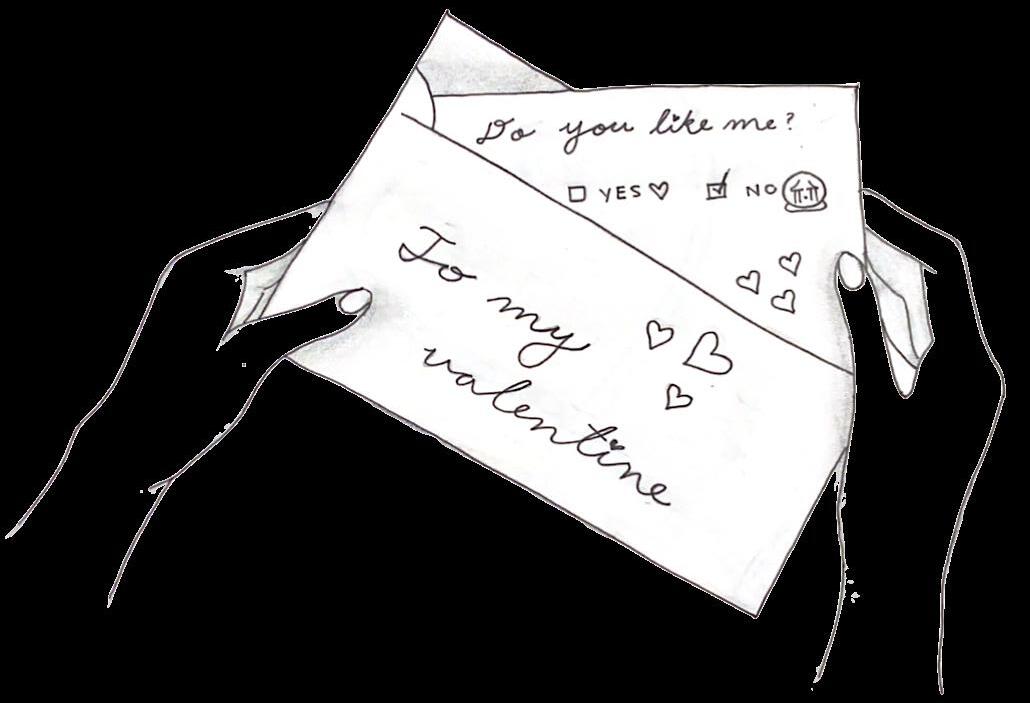 Do you like me?
☐ YES♡ ☑ NO
To my
valentine